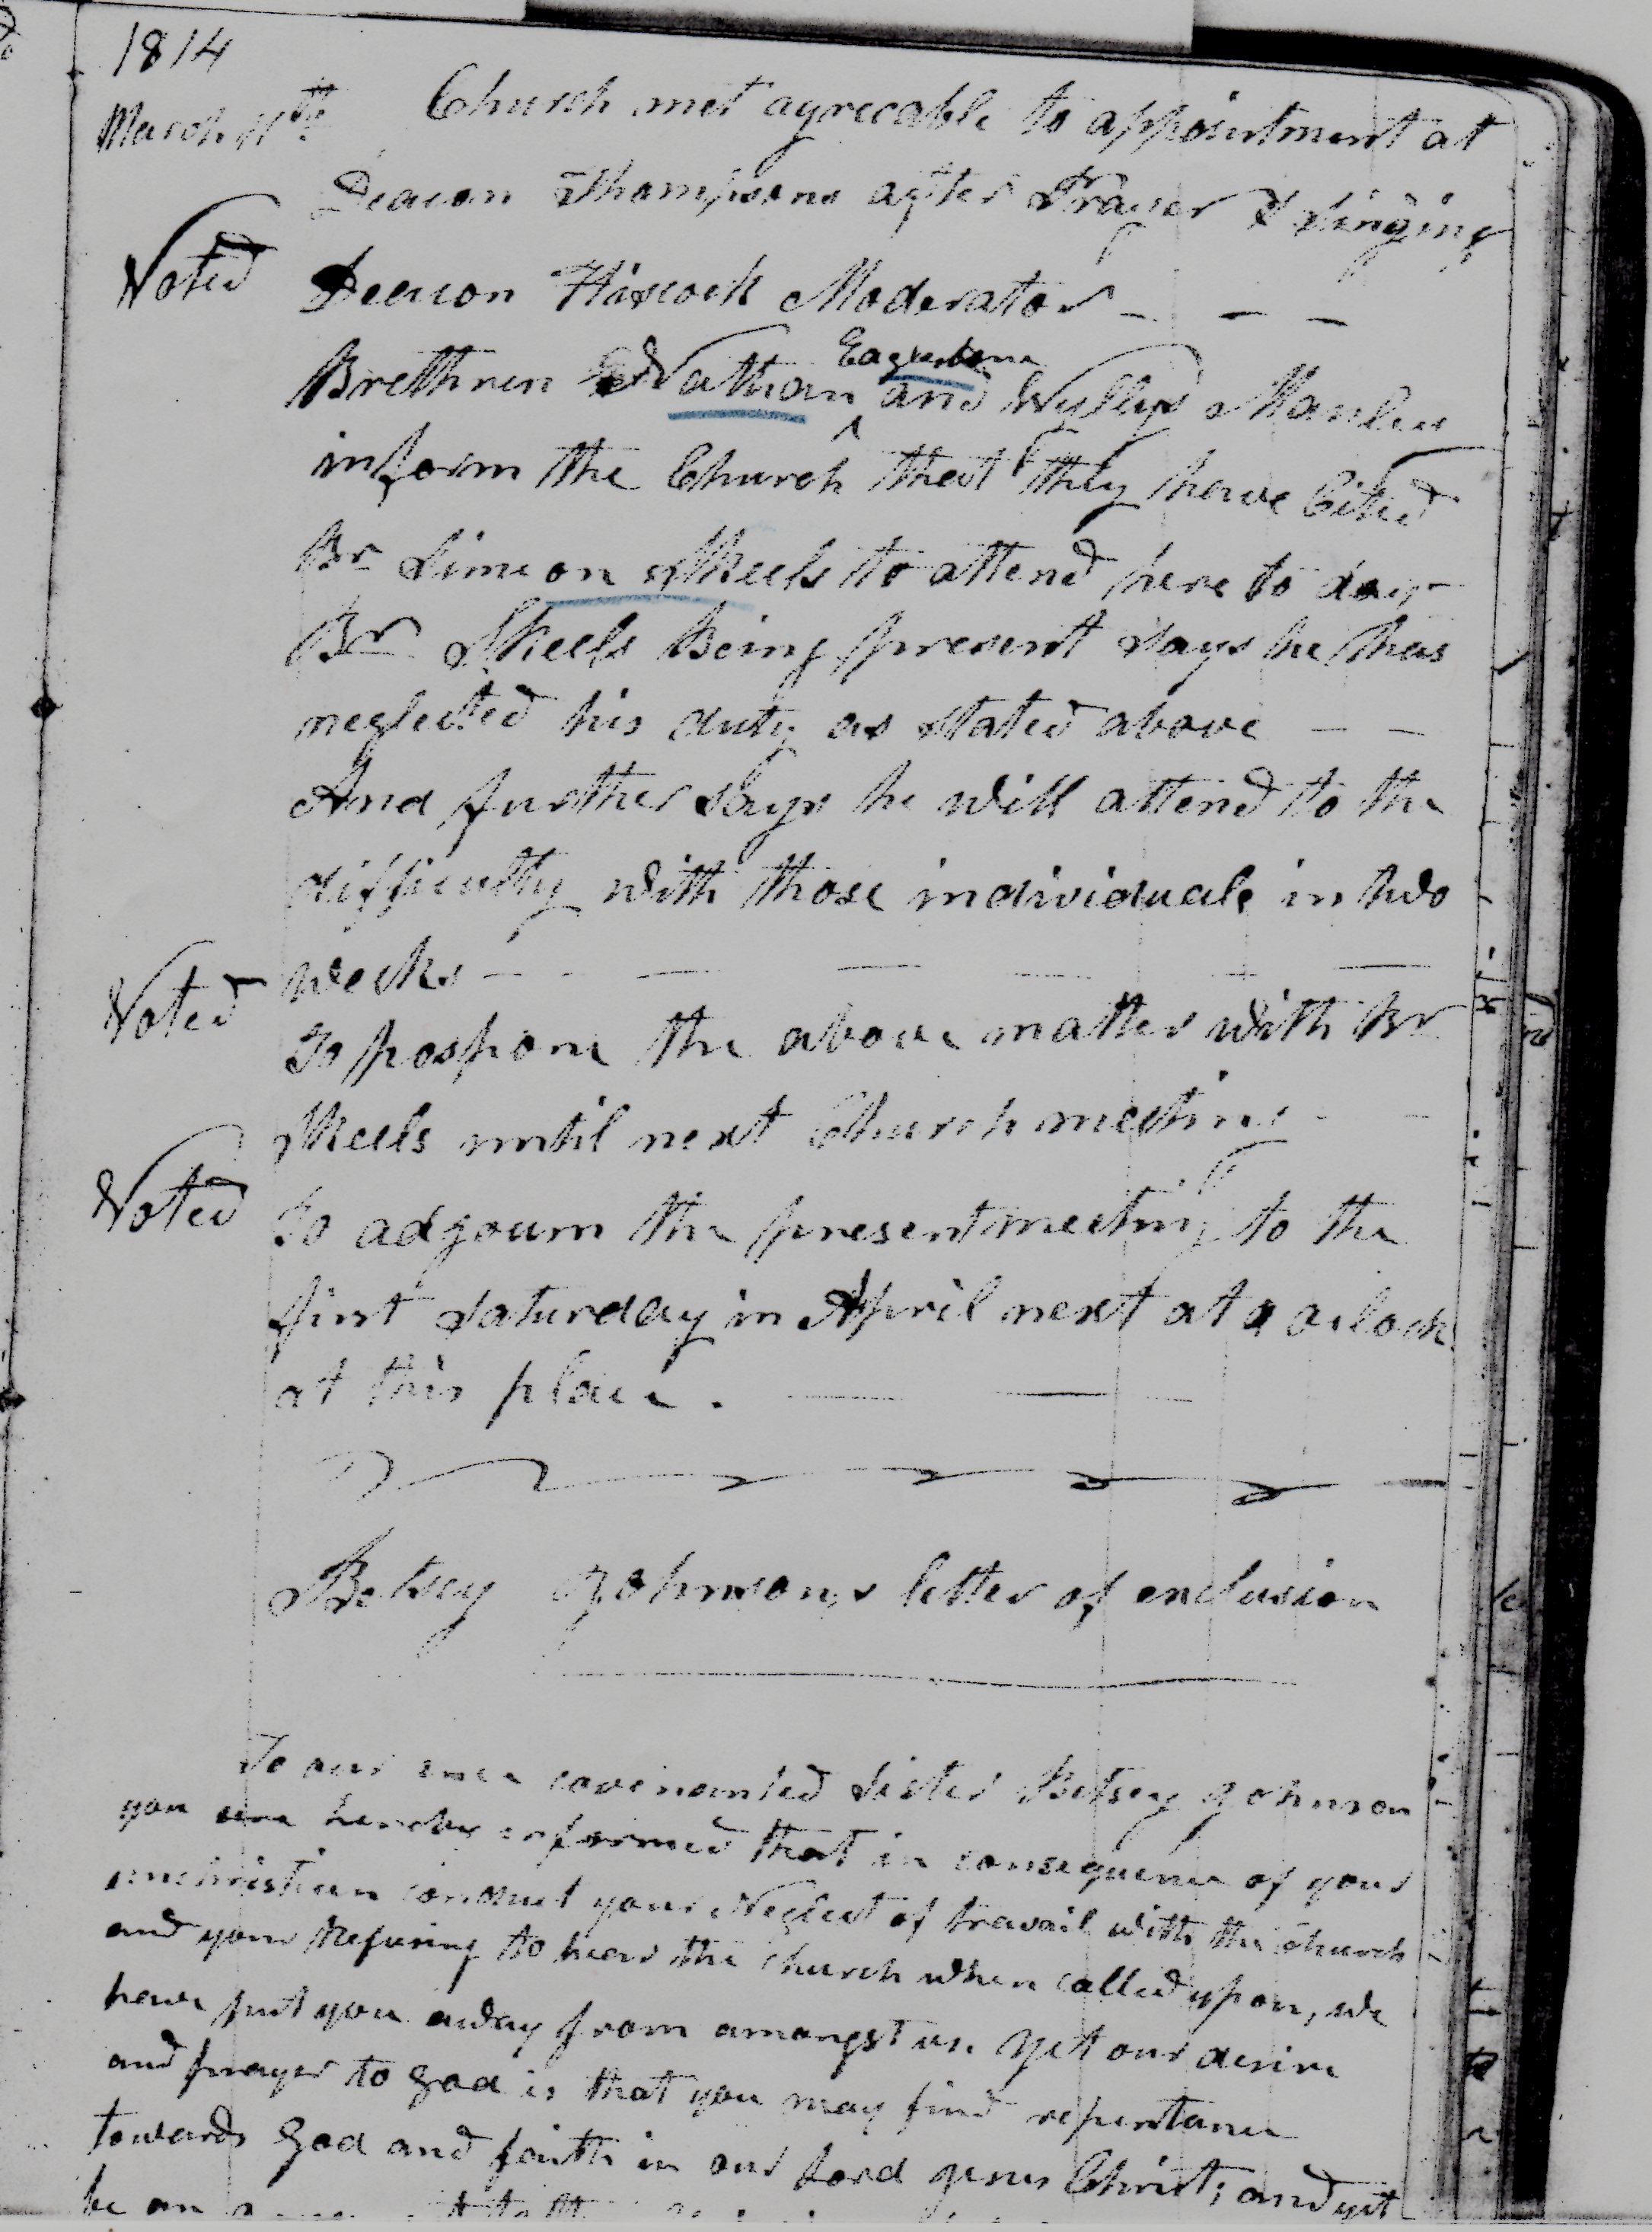 1814
March 11th Church met agreeable to appointment at
Deacon Thompsons after Prayer & singing
Voted Deacon Hiscock Moderator - - -
Brethren Nathan Eaglestone and Wyllys Manley
inform the Church that they have Cited
Br Simeon Skeels to attend here to day
Br Skeels being present says he has
neglected his duty as stated above - -
And further says he will attend to the
difficulty with those individuals in two
weeks - - - - - - -
Voted To pospone the above matter with Br
Skeels until next Church meeting - -
Voted to adjourn the present meeting to the
first Saturday in April next at oclock
at this place.
Betsey Johnson,s letter of exclusion
To our once covenanted sister Betsey Johnson
you are hereby informed that in consequence of your
unchristian conduct your Neglect of travail with the church
and your Refusing to hear the church when called upon, we
have put you away from amongst us. yet our desire
and prayer to God is that you may find repentance
towards God and faith in our Lord Jesus Christ; and yet
be an